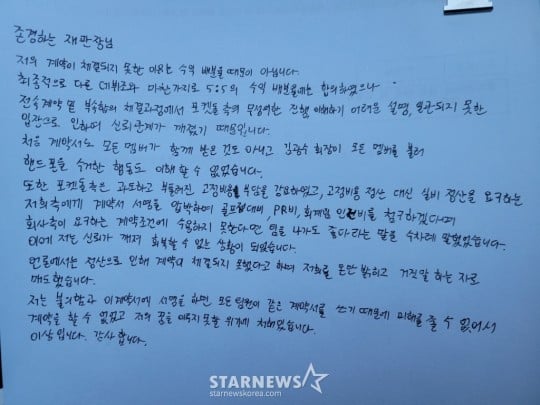 존경하는 재판장님
저의 계약이 체결되지 못한 이유는 수익 배분율 때문이 아닙니다.
최종적으로 다른 데뷔조와 마찬가지로 5:5의 수익 배분율에는 합의하였으나
전속계약 및 부속합의 체결과정에서 포켓돌 측의 무성의한 진행, 이해하기 어려운 설명, 일관되지 못한
입장으로 인하여 신뢰관계가 깨졌기 때문입니다.
처음 계약서도 모든 멤버가 함께 받은 것도 아니고 김광수 회장이 모든 멤버를 불러
핸드폰을 수거한 행동도 이해할 수 없었습니다.
또한 포켓돌측은 과도하고 부풀려진 고정비용 부담을 강요하였고, 고정비용 정산 대신 실비 정산을 요구하는
저희측에게 계약서 서명을 압박하며 PR비, 회계팀 인건비를 청구하겠다며
회사측이 요구하는 계약조건에 수용하지 못한다면 팀을 나가도 좋다 라는 말을 수차례 말했었습니다.
이에 저는 신뢰가 깨져 회복할 수 없는 상황이 되었습니다.
언론에서는 정산으로 인해 계약이 체결되지 못했다고 하며 저희를 돈만 밝히고 거짓말 하는 자로
매도했습니다.
저는 불의함과 이계약서에 서명을 하면 모든 팀원이 같은 계약서를 쓰기 때문에 피해를 줄 수 없어서
계약을 할 수 없었고 저의 꿈을 이루지 못할 위기에 처해있습니다.
이상입니다. 감사합니다.
STARNEWS
starnewskorea.com